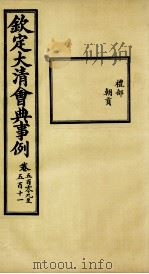 欽定大清會典事例
卷五百零九至
五百十一
禮部
朝貢
www.mtoou.info